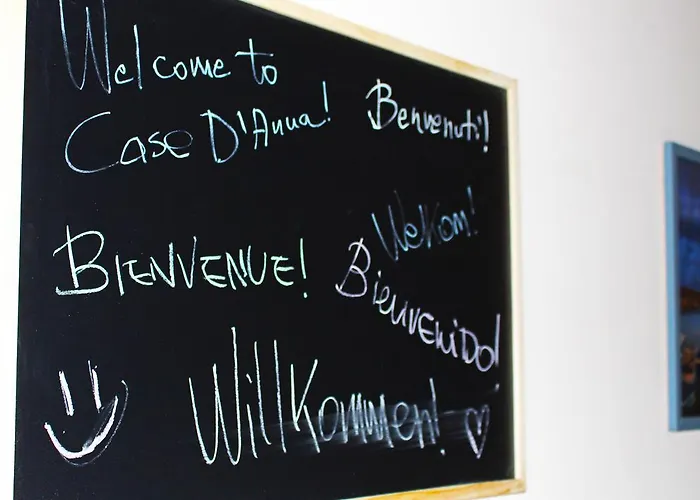 Welcome to
Case D'Anna!
Benvenuti!
Welkom!
BIENVENUE!
BienvENiDo!
WillKommen!